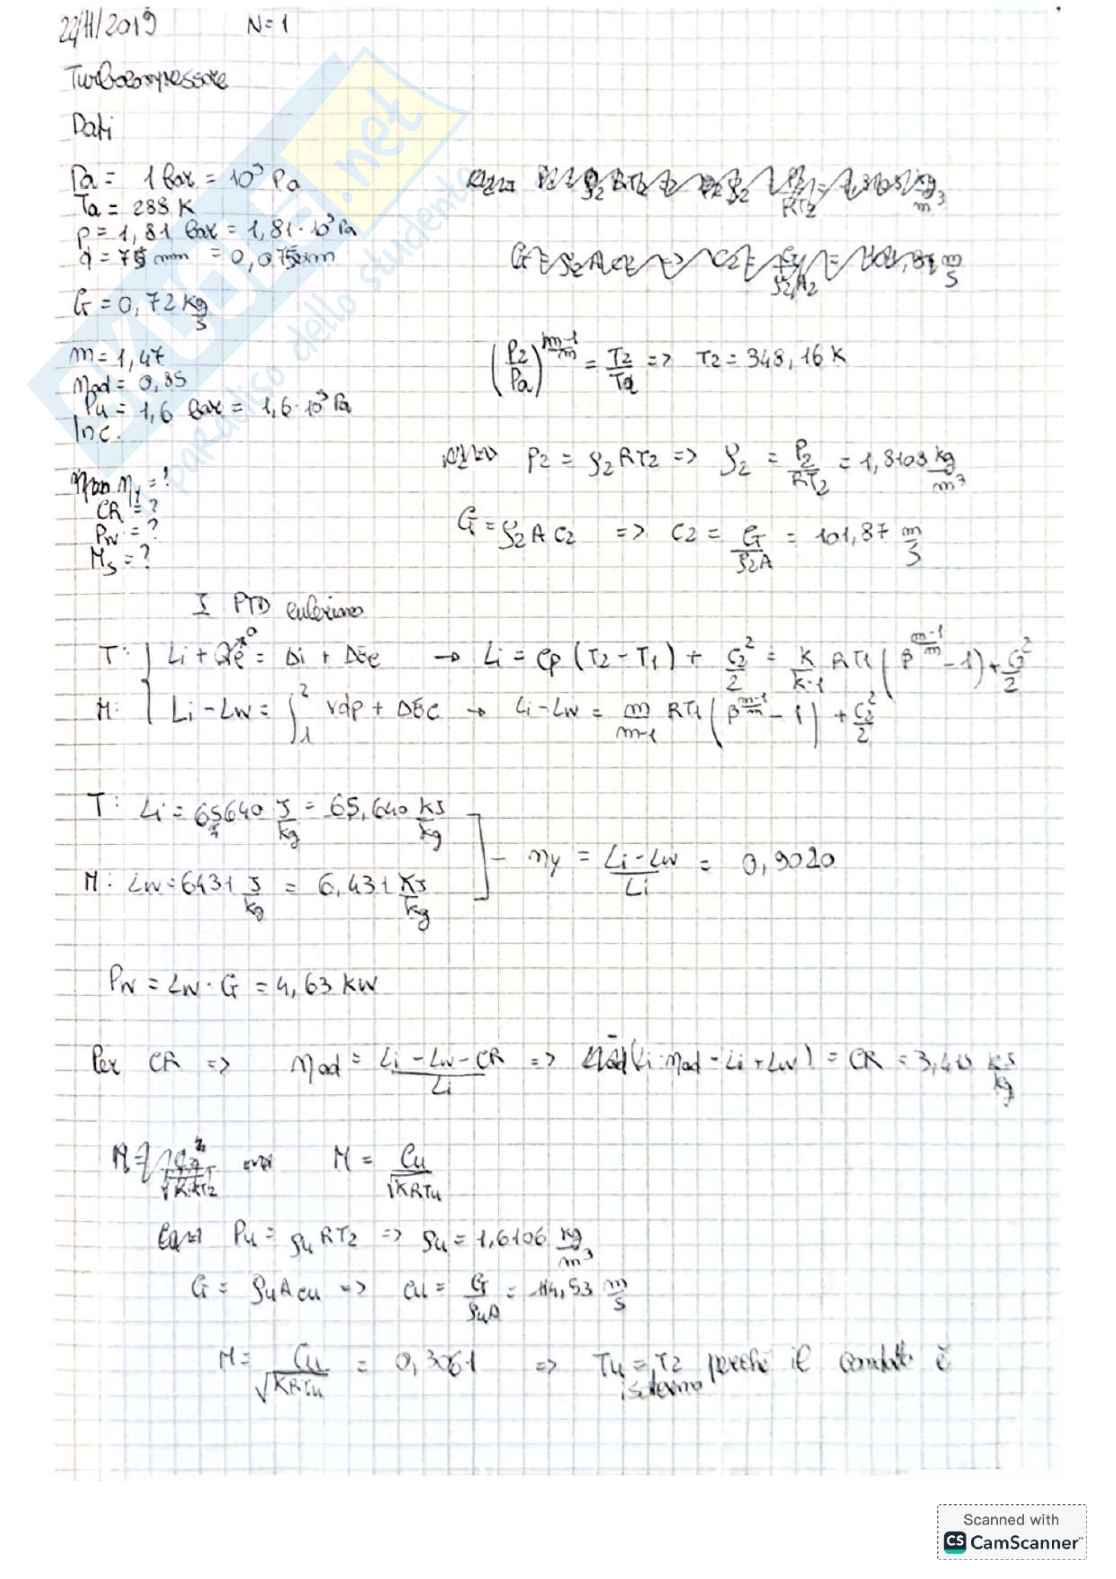 22/11/2019 N=1
Turbocompressore
Dati
Pa = 1 bar = 10⁵ Pa
Ta = 288 K
p = 1,81 bar = 1,81·10⁵ Pa
d = 75 mm = 0,075 m
G = 0,72 kg/s
m = 1,47
ηad = 0,85
Pu = 1,6 bar = 1,6·10⁵ Pa
Inc.
ηy = ?
CR = ?
Pw = ?
Ms = ?
(P2/Pa)^((m-1)/m) = T2/Ta => T2 = 348,16 K
P2 = ρ2 RT2 => ρ2 = P2/RT2 = 1,8103 kg/m³
G = ρ2 A C2 => C2 = G/ρ2A = 101,87 m/s
I PTD euleriano
T: { Li + Qe = Δi + ΔEc → Li = cp (T2 - T1) + C2²/2 = K/(K-1) RT1 (β^((m-1)/m) - 1) + C2²/2
M: { Li - Lw = ∫₁² vdp + ΔEc → Li - Lw = m/(m-1) RT1 (β^((m-1)/m) - 1) + C2²/2
T: Li = 65640 J/kg = 65,640 kJ/kg
ηy = (Li - Lw)/Li = 0,9020
M: Lw = 6431 J/kg = 6,431 KJ/kg
Pw = Lw · G = 4,63 kW
Per CR => ηad = (Li - Lw - CR)/Li => -(Li ηad - Li + Lw) = CR = 3,415 kJ/kg
M = Cu/√KRTu
Pu = ρu RT2 => ρu = 1,6106 kg/m³
G = ρu A cu => cu = G/ρuA = 114,53 m/s
M = Cu/√KRTu = 0,3061 => Tu = T2 perché il condotto è
isotermo
.net
paradiso dello studente
Scanned with
CS CamScanner